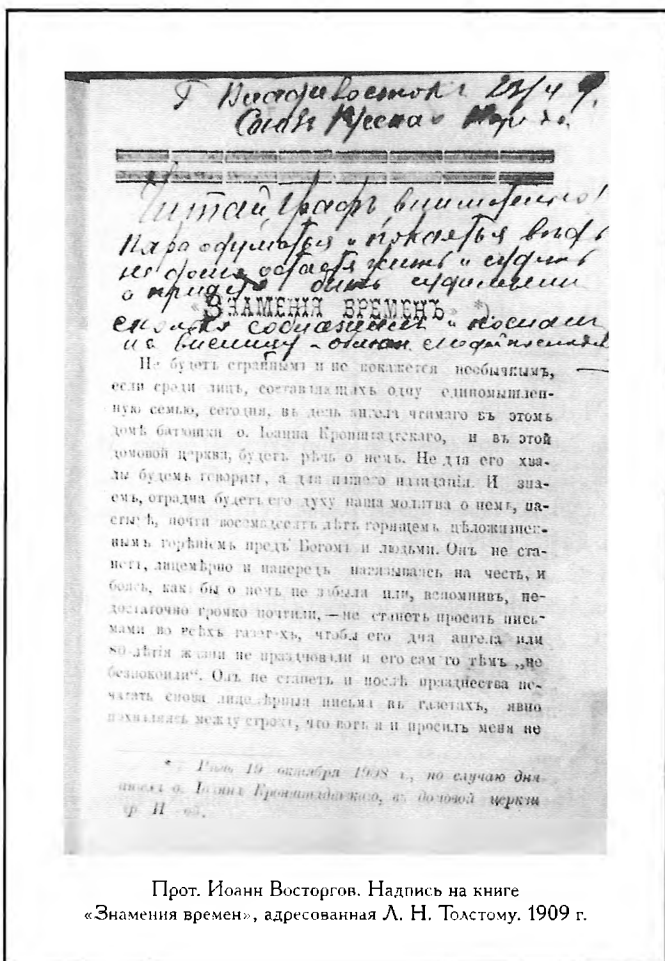 Г Владивостокъ 22/4 9.
Союзъ Русскаго Народа.
Читай, графъ внимательно!
Пора одуматься и покаяться вѣдь
не долго остается жить и
о придется быть судимымъ
«ЗНАМЕНІЯ ВРЕМЕНЪ» *)
и
на
Не будетъ страннымъ и не покажется необычнымъ,
если среди лицъ, составляющихъ одну единомышлен-
ную семью, сегодня, въ день ангела чтимаго въ этомъ
домѣ батюшки о. Іоанна Кронштадтскаго, и въ этой
домовой церкви, будетъ рѣчь о немъ. Не для его хва-
лы будемъ говорить, а для нашего назиданія. И зна-
емъ, отрадна будетъ его духу наша молитва о немъ, па-
стырѣ, почти восемьдесятъ лѣтъ горящемъ
нымъ горѣніемъ предъ Богомъ и людьми. Онъ не ста-
нетъ, лицемѣрно и напередъ называясь на честь, и
боясь, какъ бы о немъ не забыли или, вспомнивъ, не-
достаточно громко почтили,—не станетъ просить пись-
мами во всѣхъ газетахъ, чтобы его дня ангела или
80-лѣтія жизни не праздновали и его самого тѣмъ „не
безпокоили“. Онъ не станетъ и послѣ празднества пе-
чатать снова лицемѣрныя письма въ газетахъ, явно
похваляясь между строкъ, что вотъ я и просилъ меня не
* Рѣчь 19 октября 1908 г., по случаю дня
ангела о. Іоанна Кронштадтскаго, въ домовой церкви
Прот. Иоанн Восторгов. Надпись на книге
«Знамения времен», адресованная Л. Н. Толстому. 1909 г.